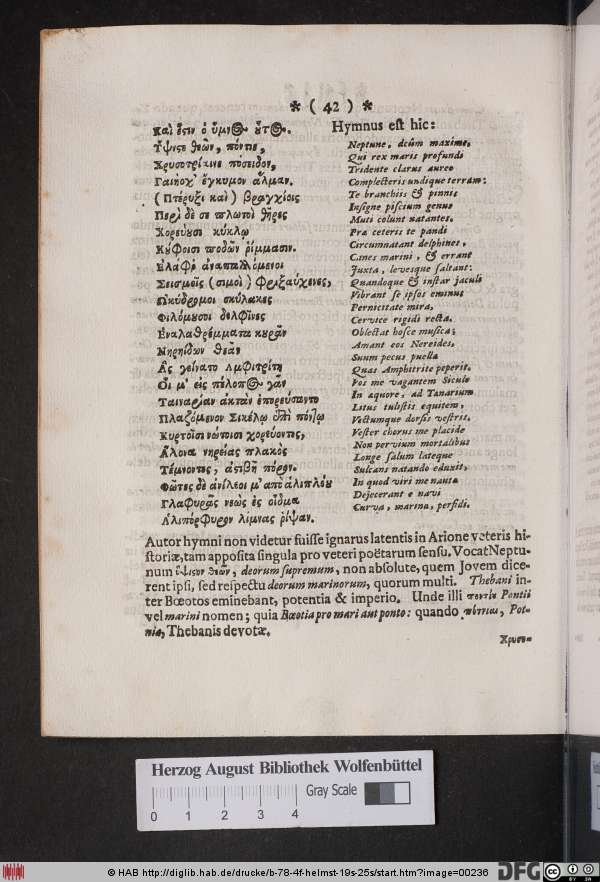 * ( 42 ) *
Καὶ ἔςιν ὁ ὕμν@ ὅτ@.
Ὕψιςε θεῶν, πόντιε,
Χρυσοτρίαινε πόσειδον,
Γαιήοχ' ἔγκυμον ἅλμαν.
( Πτέρυξι καὶ ) βραγχίοις
Περὶ δέ σε πλωτοὶ θῆρες
Χορεύυσι κύκλῳ
Κύφοισι ποδῶν ῥίμμασιν.
Ἐλάφρ' ἀναπαλλόμενοι
Σεισμοῖς (σιμοὶ) Φριξαύχενες,
ὠκύδρομοι σκύλακες
Φιλόμυσοι δελφῖνες
Ἐναλαθρέμματα κυρᾶν
Νηρηίδων θεᾶν
Ἃς γείνατο Ἀμφιτρίτη
Οἵ μ' εἰς πέλοπ@ γᾶν
Ταιναρίαν ἀκτὰν ἐπορεύσατο
Πλαζόμενον Σικέλῳ ἐπὶ πόντῳ
Κυρτοῖσι νώτοισι χορεύοντες,
Ἄλοκα νηρείας πλακὸς
Τέμνοντες, ἀτιβῆ πόρον.
Φῶτες δὲ ἀνίλεοι μ' ἀπὸ ἁλιπλόυ
Γλαφυρᾶς νεὼς ἐς οἶδμα
Ἁλιπόρφυρον λίμνας ῥίψαν.
Hymnus est hic:
Neptune, deûm maxime,
Qui rex maris profundi
Tridente clarus aureo
Complecteris undique terram:
Te branchiis & pinnis
Insigne piscium genus
Muti colunt natantes.
Præ ceteris te pandi
Circumnatant delphines,
Canes marini, & errant
Juxta, levesque saltant:
Quandoque & instar jaculi
Vibrant se ipsos eminus
Pernicitate mira,
Cervice rigidi recta.
Oblectat hosce musica;
Amant eos Nereides,
Suum pecus puellæ
Quas Amphitrite peperit.
Vos me vagantem Siculo
In æquore, ad Tænarium
Litus tulistis equitem,
Vectumque dorsis vestris.
Vester chorus me placide
Non pervium mortalibus
Longe salum lateque
Sulcans natando eduxit,
In quod viri me nauta
Dejecerant e navi
Curva, marina, perfidi.
Autor hymni non videtur fuisse ignarus latentis in Arione veteris hi-
storiæ, tam apposita singula pro veteri poëtarum sensu. Vocat Neptu-
num ὕψιςον θεῶν, deorum supremum, non absolute, quem Jovem dice-
rent ipsi, sed respectu deorum marinorum, quorum multi. Thebani in-
ter Bœotos eminebant, potentia & imperio. Unde illi ποντίυ Pontii
vel marini nomen; quia Bœotia pro mari aut ponto: quando πότνιαι, Pot-
niæ, Thebanis devotæ.
Χρυσο-
Herzog August Bibliothek Wolfenbüttel
0 1 2 3 4 Gray Scale
© HAB http://diglib.hab.de/drucke/b-78-4f-helmst-19s-25s/start.htm?image=00236
DFG
cc BY SA